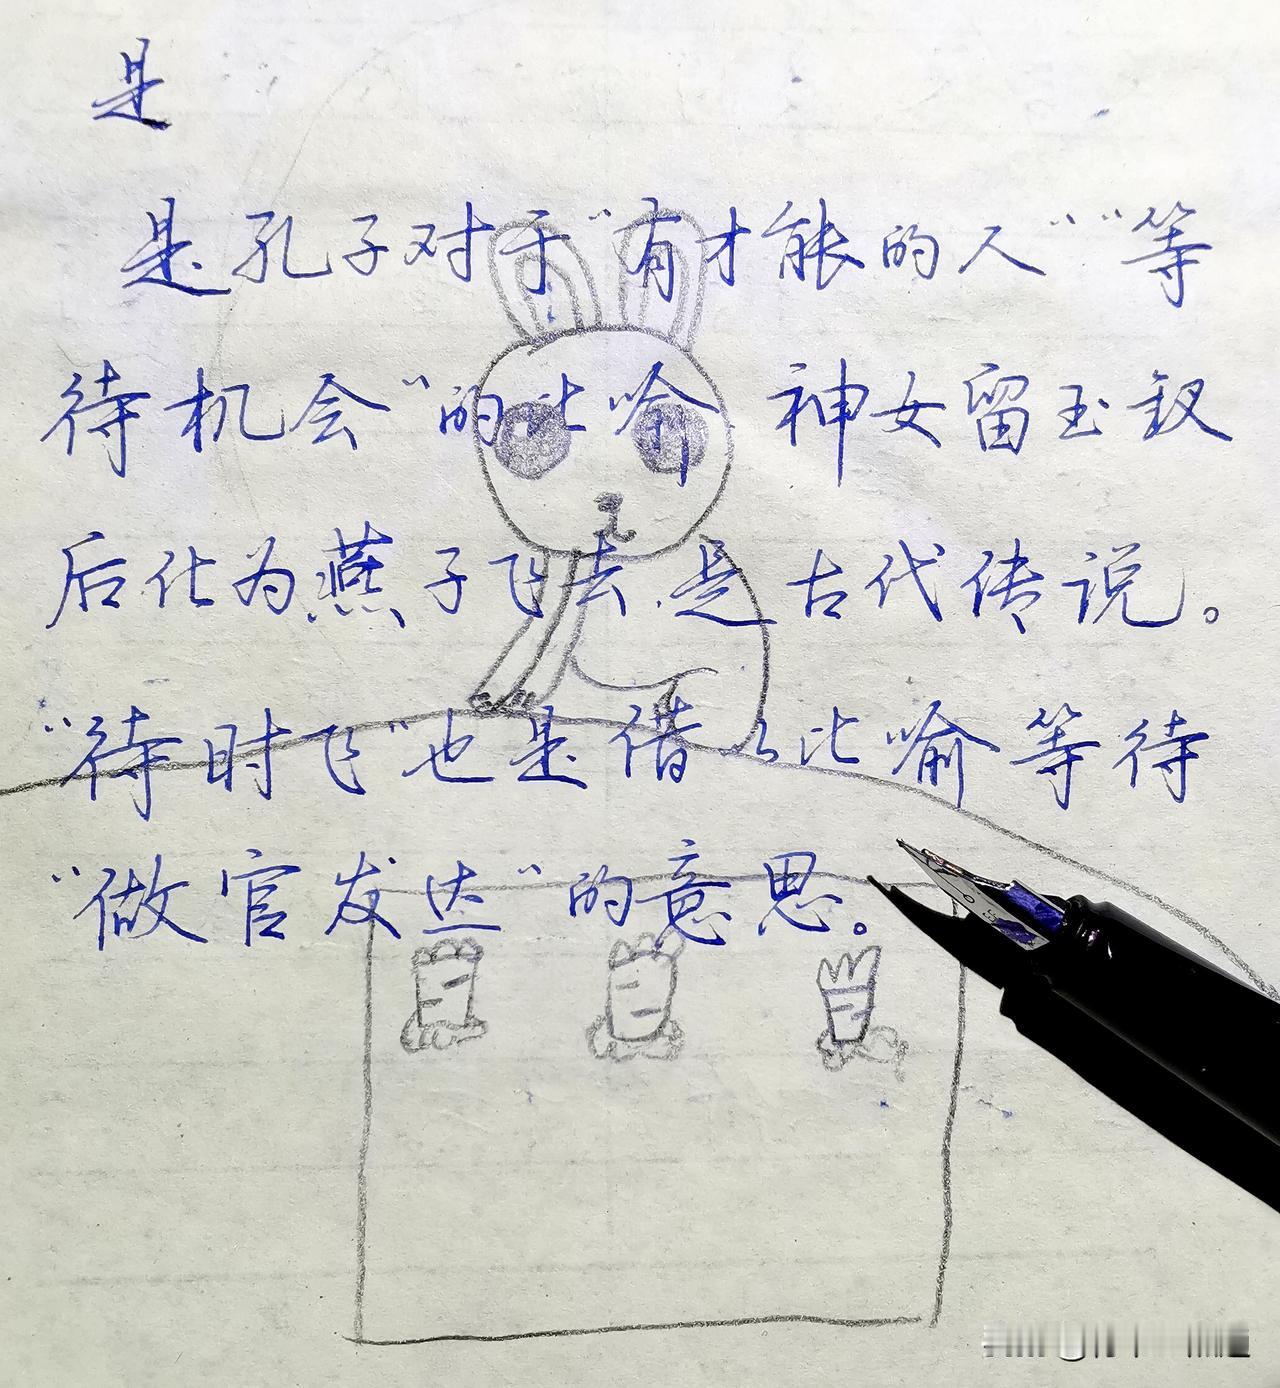 是
是孔子对于“有才能的人”“等
待机会”的比喻 神女留玉钗
后化为燕子飞去是古代传说。
“待时飞”也是借以比喻等待
“做官发达”的意思。